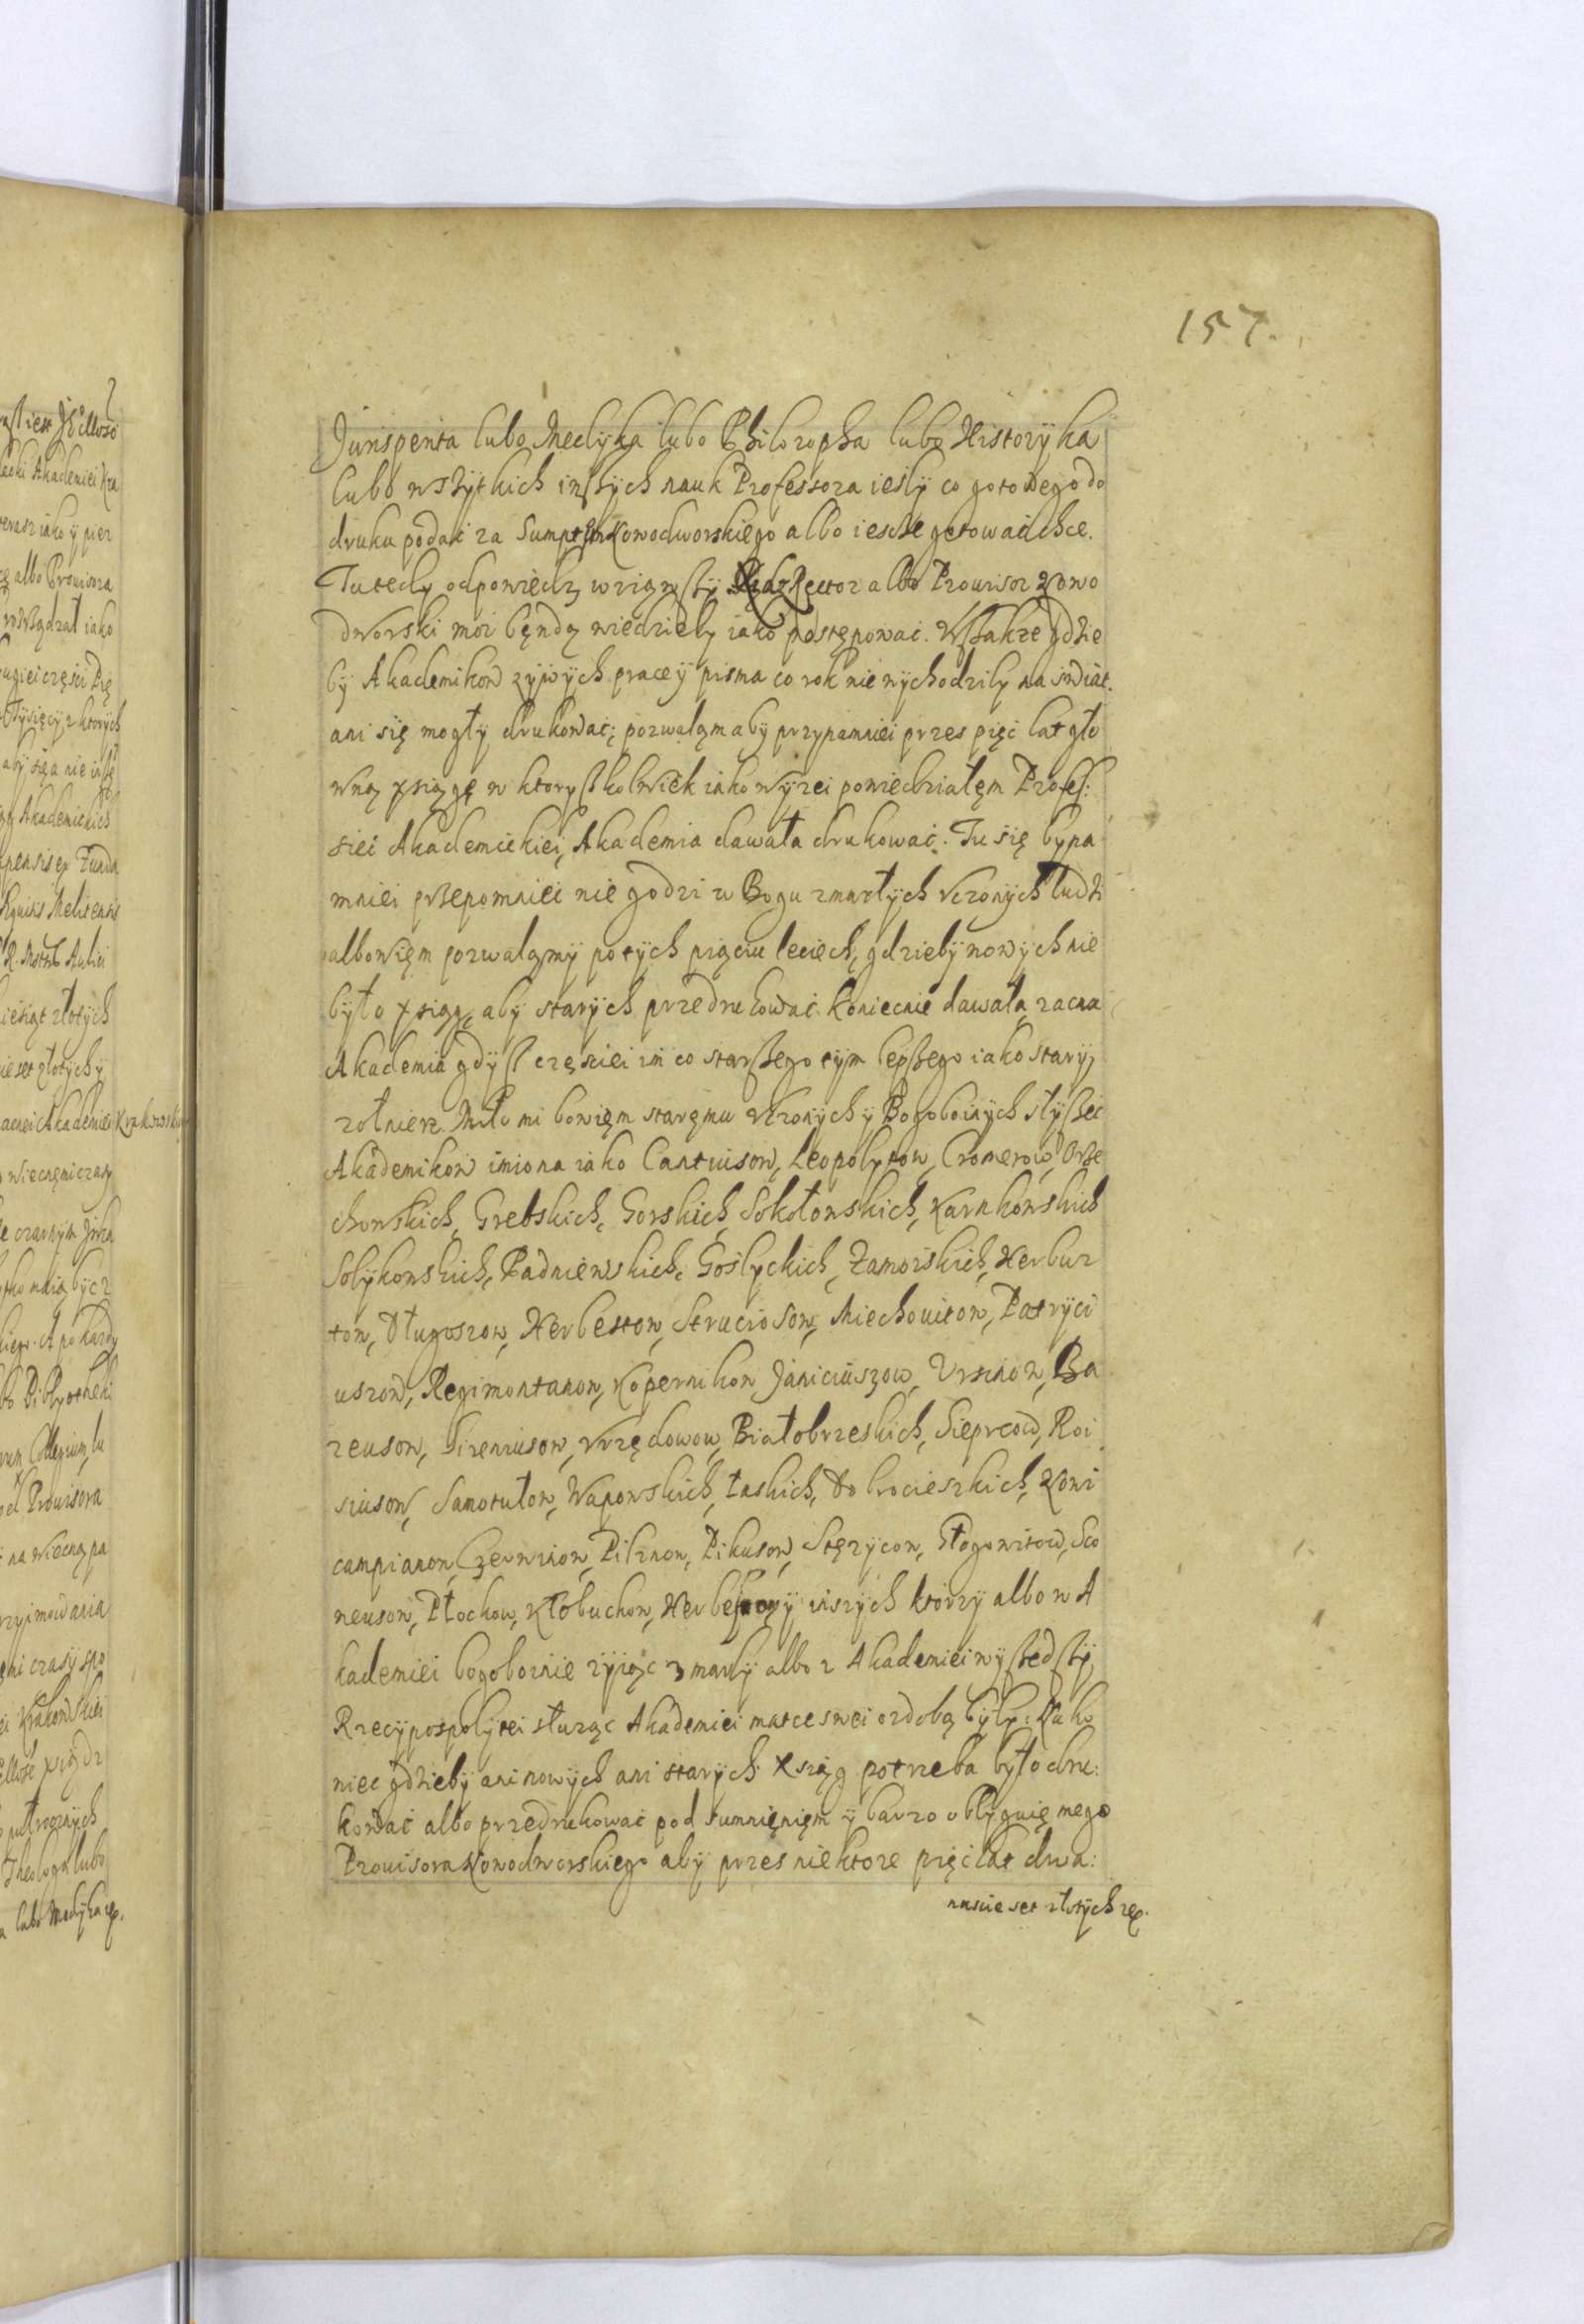 157.
Jurisperita lubo Medÿka lubo Philozopha lubo Historÿka
lubo wszÿtkich inszÿch nauk Professora iesly co gotowego do
druku podać za Sumptem Nowodworskiego albo iescze gotować chce.
Tu tedy odpowiedz wziąwszÿ Rector albo Prouisor Nowo
dworski moi bęndą wiedziely iako postępować. Wszakze gdzie
bÿ Akademikow zÿwÿch prace ÿ pisma co rok nie wÿchodzily na swiat.
ani się mogłÿ drukować; pozwaląm abÿ przynamniei przes pięć lat gło
wną xsiązgę w ktorÿszkolwiek iako wÿzei powiedziałęm Profes:
siei Akademickiei, Akademia dawała drukować. Tu się bÿna
mniei przepomniei nie godzi w Bogu zmarłÿch Vczonÿch ludzi
albowięm pozwaląmÿ po tÿch pięciu leciech, gdziebÿ nowÿch nie
bÿło xsiąg, abÿ starÿch przedrukować koniecnie dawała zacna
Akademia gdÿsz częsciei im co starszego tÿm lepszego iako starÿ
zołnierz. Miło mi bowięm staręmu Vczonÿch ÿ Bogoboinÿch słÿszeć
Akademikow imiona iako Cantiusow, Leopolytow, Cromerow, Orze
chowskich, Grebskich, Gorskich, Sokołowskich, Karnkowskich
Solÿkowskich, Padniewskich, Goslyckich, Zamoiskich, Herbur
tow, Długoszow, Herbestow, Struciosow, Miechouitow, Patrÿci
uszow, Regimontanow, Kopernikow Janiciuszow, Vrsinow, Ba
zeusow, Sireniusow, Vrzędowow, Białobrzeskich, Sieprcow, Roi
siusow, Samotulow, Wapowskich, Łaskich, Dobrocieszkich, Noui
campianow, Czerwinow, Pilznow, Pikusow, Stęzÿcow, Głogowitow, Sco
neusow, Płochow, Kłobuchow, ÿ inszÿch ktorzÿ albo w A
kademiei bogoboinie zÿiąc zmarlÿ albo z Akademiei wÿszedszÿ,
Rzecÿpospolÿtei słuząc Akademiei matce swei ozdobą bÿly. Na ko
niec gdziebÿ ani nowÿch ani starÿch xsiąg potrzeba bÿło dru:
kować albo przedrukować pod sumnięnięm ÿ barzo oblÿguię mego
Prouisora Nowodworskiego abÿ przes niektore pięć lat dwa:
nascie set złotÿch